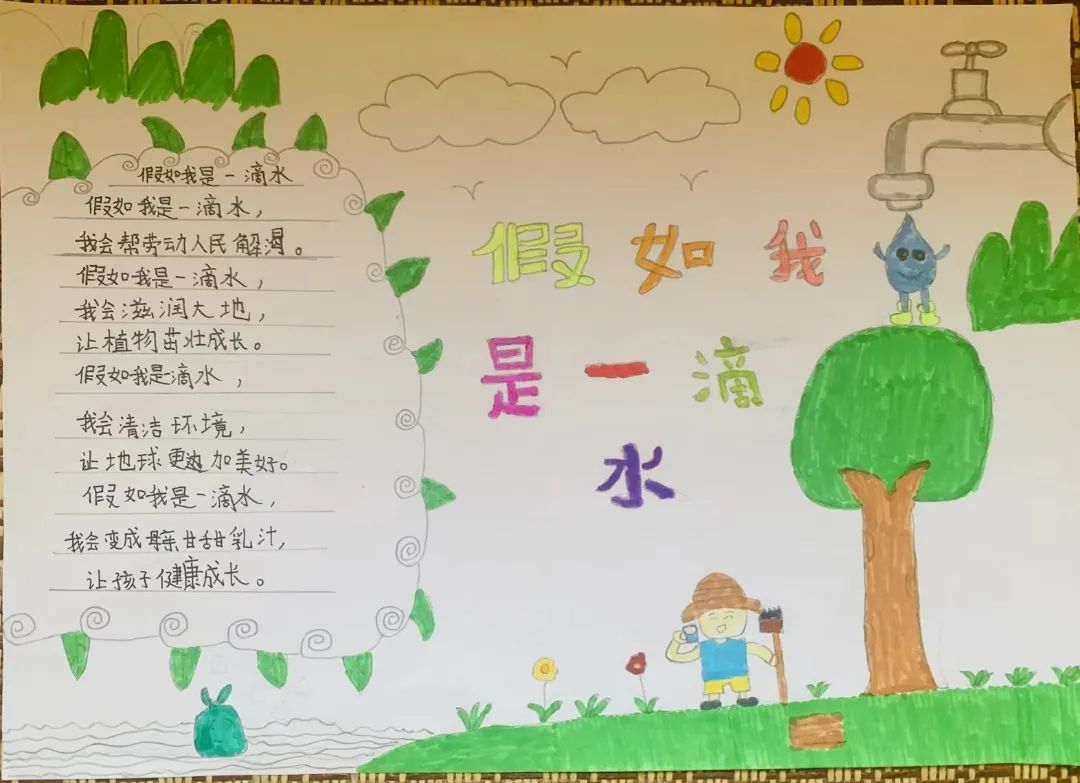 假如我是一滴水
假如我是一滴水，
我会帮劳动人民解渴。
假如我是一滴水，
我会滋润大地，
让植物茁壮成长。
假如我是一滴水，
我会清洁环境，
让地球更加美好。
假如我是一滴水，
我会变成母亲甘甜乳汁，
让孩子健康成长。
假如我
是一滴
水